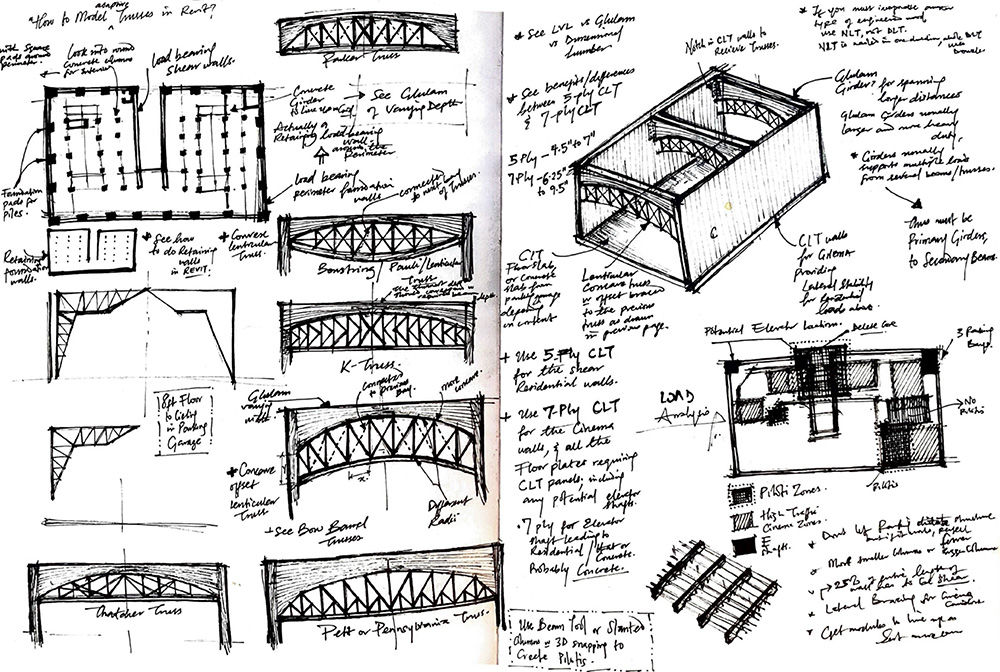 "How to Model adaptive Trusses in Revit?
Parker Truss
Look into round
concrete columns
for Interior
load bearing
shear walls.
Concrete
Girder
See Glulam
of Varying Depth
Actually a
Retaining load bearing
wall
around the
Perimeter
load bearing
perimeter foundation
walls
Foundation
pads for
piles.
Retaining
foundation
walls.
* See how
to do Retaining
walls
in REVIT.
* Convexe
lenticular
Truss.
connected
to next bay
of Trusses.
Bowstring / Pauli / Lenticular
Truss
K-Truss
8pt Floor
to Ceiling
in Parking
Garage
Glulam
connected
to Previous
Bay
most concave.
* Concave
offset
lenticular
Truss
x
Different
Radii
* See Bow Barrel
Trusses
Thatcher Truss
Petit or Pennsylvania Truss.
* See LVL vs Glulam
vs Dimensional
Lumber
* See benefits/differences
between 5-ply CLT
& 7-Ply CLT
5 Ply – 4.5" to 7"
7 Ply – 6.25"
to 9.5"
Notch in CLT walls to
Recieve Trusses.
* If you must incorporate another
type of engineered wood
use NLT, not DLT.
NLT is nailed in construction, while DLT
uses
Dowels
Glulam
Girders for spanning
larger distances
Glulam Girders usually
larger and more heavy
duty,
* Girders usually
supports multiple loads
from several beams/trusses.
Thus must be
Primary Girders,
to Secondary Beams
C
CLT
Floor slab,
or Concrete
slab from
parking garage
depending
on context
Lenticular
Concave truss
w offset braced
to the previous
truss as drawn
in previous page.
CLT walls
for CINEMA
providing
Lateral Stability
for Residential
loads above.
+ Use 5-Ply CLT
for the shear
Residential walls.
+ Use 7-Ply CLT
for the Cinema
walls, & all the
Floor plates requiring
CLT panels, including
any potential elevator
shafts.
. 7 ply for Elevator
shaft leading to
Residential / Heat or
Concrete.
Probably Concrete.
Potential Elevator Location.
Delete Core
3 Parking
Bays
LOAD
Analysis
No
Pilotis
Pilotis
Pilotis Zones.
High Traffic
Cinema Zones.
E
Shafts.
* Lateral Bracing for Cinema
* Get modules to line up as
Use Beam Tool or Slanted
Columns w 3D snapping to
Create Pilotis.